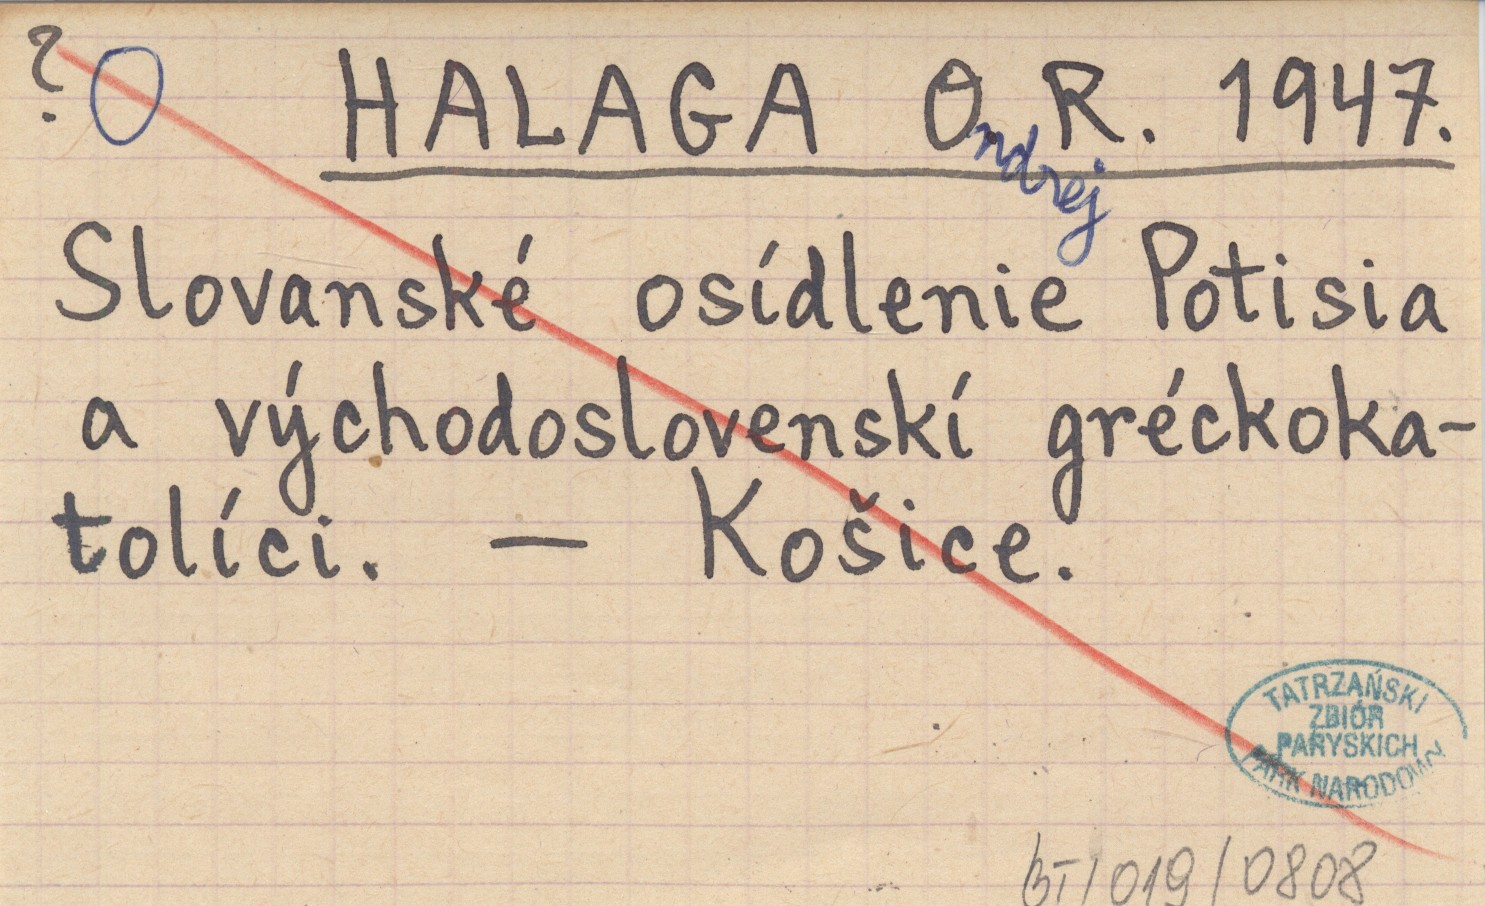 ? O HALAGA O. R. 1947.
ndrej
Slovanské osídlenie Potisia
a východoslovenskí gréckoka-
tolíci. — Košice.
TATRZAŃSKI
ZBIÓR
PARYSKICH
PARK NARODOWY
BT/019/0808